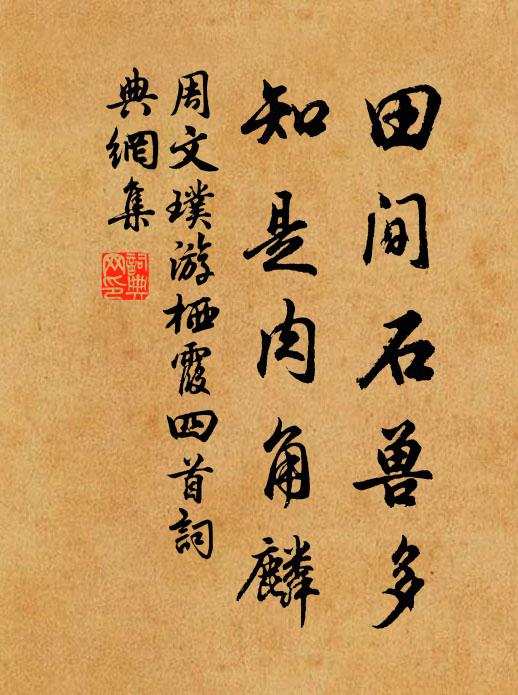 田间石兽多
知是肉角麟
周文璞游栖霞四首詞
典網集
詞典
网印